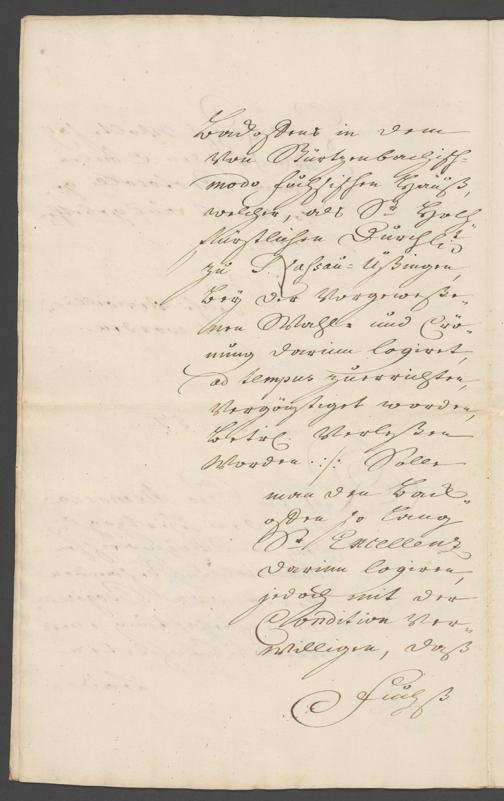 Backoffens in dem
von Würtzenbachisch-
modo Fuchsischen Hauß,
welcher, als Sr. Hoch-
fürstlichen Durchlt.
zu Nassau-Ußingen,
bey der vorgeweße-
nen Wahl- und Crö-
nung darinn logiret,
ad tempus zuerrichten,
vergönstiget worden,
betrl. verleßen
worden ./. Solle
man den Back-
offen so lang
Sr. Excellenz
darinn logiren,
jedoch mit der
Condition ver-
willigen, daß
Fuchß